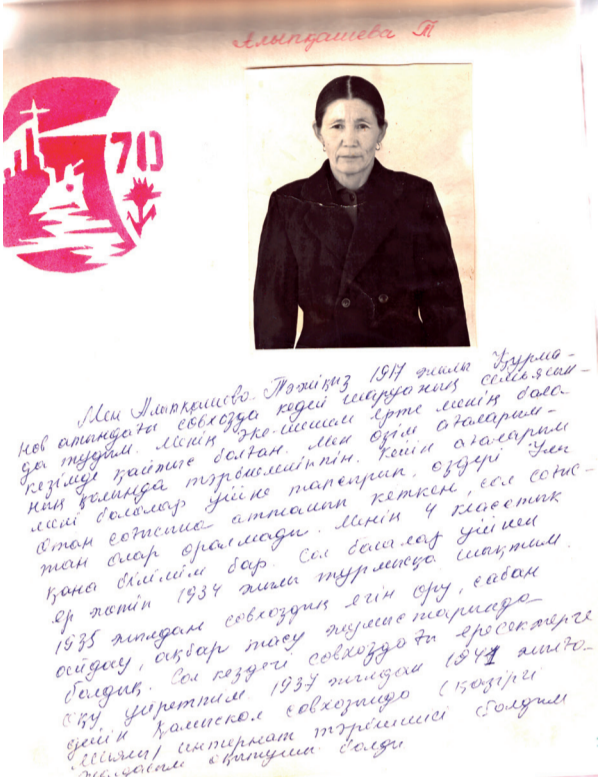 Алыпқашева Т
70
Мен Алыпқашева Тәжіқыз 1917 жылы Құрма-
нов атындағы совхозда кедей шаруаның семьясын-
да тудым. Менің әке-шешем ерте менің бала
кезімде қайтыс болған. Мен өзім аталарым-
ның қолында тәрбиелендіппін. Кейін аталарым
мені балалар үйіне тапсырып, өздері Ұлы
Отан соғысына аттанып кеткен, сол соғыс-
тан олар оралмады. Менің 4 кластық
қана білімім бар. Сол балалар үйінен
ер жетіп 1934 жылы тұрмысқа шықтым.
1935 жылдан совхоздың егін ору, сабан
айдау, ақбар тасу жұмыстарында
болдық. Сол кездегі совхоздағы ересектерге
оқу үйреттім. 1937 жылдан 1941 жылға
дейін Қамыскол совхозында (қазіргі
Миялы) интернат тәрбиешісі болдым
Жолдасым оқытушы болды